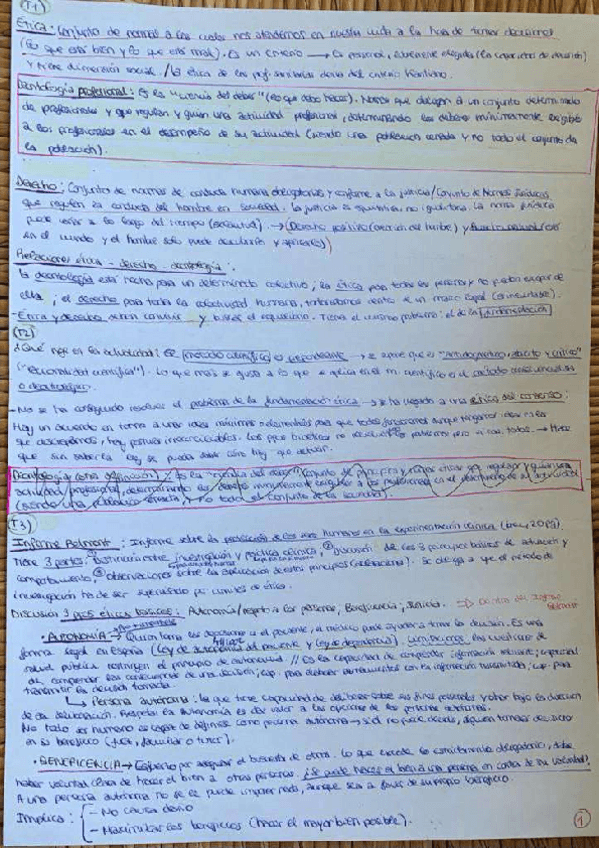 (T1)
Ética: Conjunto de normas a las cuales nos atenemos en nuestra vida a la hora de tomar decisiones
(lo que está bien y lo que está mal). Es un criterio → personal, libremente elegida (la capacidad de decisión)
y tiene dimensión social. / La ética de los prof. sanitarios deriva del criterio
Deontología profesional: Es la "ciencia del deber" (lo que debo hacer). Normas que obligan a un conjunto determinado
de profesionales y que regulan y guían una actividad profesional, determinando los deberes mínimamente exigibles
a los profesionales en el desempeño de su actividad (siendo una población cerrada y no todo el conjunto de
la población).
Derecho: Conjunto de normas de conducta humana obligatorias y conforme a la justicia / Conjunto de normas jurídicas
que regulan la conducta del hombre en sociedad. La justicia es equitativa, no igualitaria. La norma jurídica
puede variar a lo largo del tiempo → Derecho positivo (creación del hombre) y
en el mundo y el hombre solo puede descubrirlo y aplicarlo)
Relaciones ética - derecho - deontología:
La deontología está hecha para un determinado colectivo; la ética para todas las personas y no puedes escapar de
ella; el derecho para toda la colectividad humana, dentro de un marco legal
- Ética y derecho deben convivir y buscar el equilibrio. Tienen el mismo problema: el de la fundamentación
(T2)
¿Qué rige en la actualidad?: El método científico es → "
("racionalidad científica"). Lo que más se a lo que se aplica en el m. científico es el
o
- No se ha conseguido resolver el problema de la fundamentación ética → se ha llegado a una ética del consenso:
Hay un acuerdo en torno a unas ideas mínimas para que todos funcionemos aunque tengamos ideas en las
que discrepamos, hay posturas irreconciliables.
que sin saber la ley se pueda decir cómo hay que actuar.
Deontología (otra definición): Es la "ciencia del deber". Conjunto de principios y reglas éticas que regulan y guían una
actividad profesional, determinando los deberes mínimamente exigibles a los profesionales en el desempeño de su actividad
(siendo una población cerrada, y no todo el conjunto de la sociedad).
(T3)
Informe Belmont: Informe sobre la protección de los seres humanos en la experimentación clínica
Tiene 3 partes: Distinción entre investigación y práctica clínica, discusión de los 3 principios básicos de actuación y
comportamiento, observaciones sobre la aplicación de estos principios. Se obliga a que el método de
investigación ha de ser supervisado por comités de ética.
Discusión 3 ppos éticos básicos: Autonomía / respeto a las personas, Beneficencia, Justicia. ⇒ Dentro del Informe
Belmont
· AUTONOMÍA → Quien toma las decisiones es el paciente, el médico puede ayudar a tomar la decisión. Es una
forma legal en España (Ley de autonomía del paciente y ley de dependencia). Limitaciones: las cuestiones de
salud pública restringen el principio de autonomía // Es la capacidad de comprender información relevante; capacidad
de comprender las consecuencias de una decisión; cap. para elaborar razonamientos con la información transmitida; cap. para
transmitir la decisión tomada.
↳ Persona autónoma: la que tiene capacidad de deliberar sobre sus fines personales y obrar bajo la dirección
de esa deliberación. Respetar la autonomía es dar valor a las opciones de las personas autónomas.
No todo ser humano es capaz de definirse como persona autónoma → si él no puede decidir, alguien tomará decisiones
en su beneficio (juez, familiar o tutor).
· BENEFICENCIA → Esfuerzo por asegurar el bienestar de otros. Lo que excede lo estrictamente obligatorio, debe
haber voluntad clara de hacer el bien a otras personas. ¿Se puede hacer el bien a una persona en contra de su voluntad?
A una persona autónoma no se le puede imponer nada, aunque sea a favor de su propio beneficio.
Implica:
- No causar daño
- Maximizar los beneficios (hacer el mayor bien posible).
1